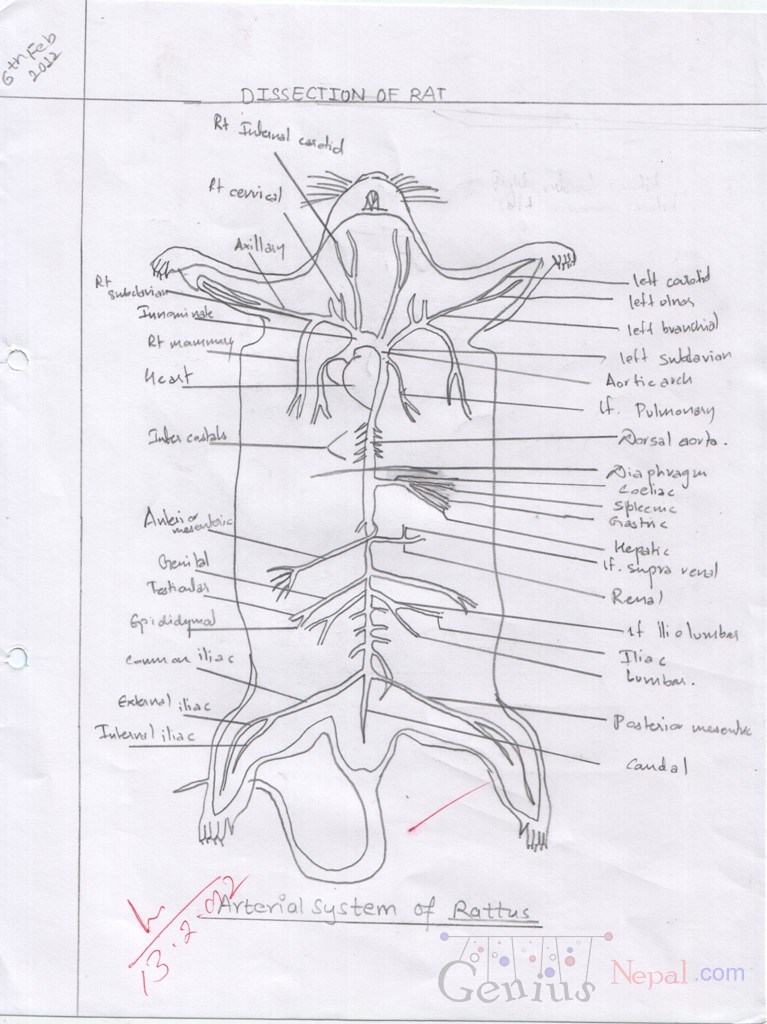 6th Feb
2012
DISSECTION OF RAT
Rt Internal carotid
Rt cervical
Axillary
Rt
subclavian
Innominate
Rt mammary
Heart
Inter costals
Anterior
mesenteric
Genital
Testicular
Epididymal
common iliac
External iliac
Internal iliac
left carotid
left ulnar
left branchial
left subclavian
Aortic arch
lf. Pulmonary
Dorsal aorta.
Diaphragm
Coeliac
Spleenic
Gastric
Hepatic
lf. supra renal
Renal
lf Ilio lumbar
Iliac
Lumbar.
Posterior mesentric
Caudal
Arterial system of Rattus
13.2.012
Genius Nepal.com